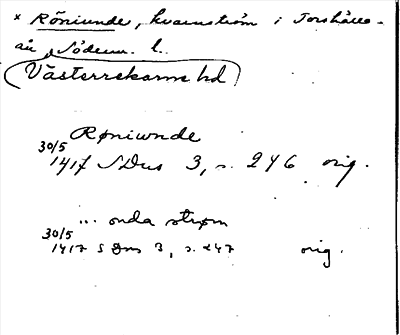 × Röniunde, kvarnström i Torshälla-
ån, Söderm. l.
Västerrekarne hd
Røniwnde
30/5
1417 SDns 3, s. 246 orig.
... onda strøm
30/5
1417 SDns 3, s. 247 orig.